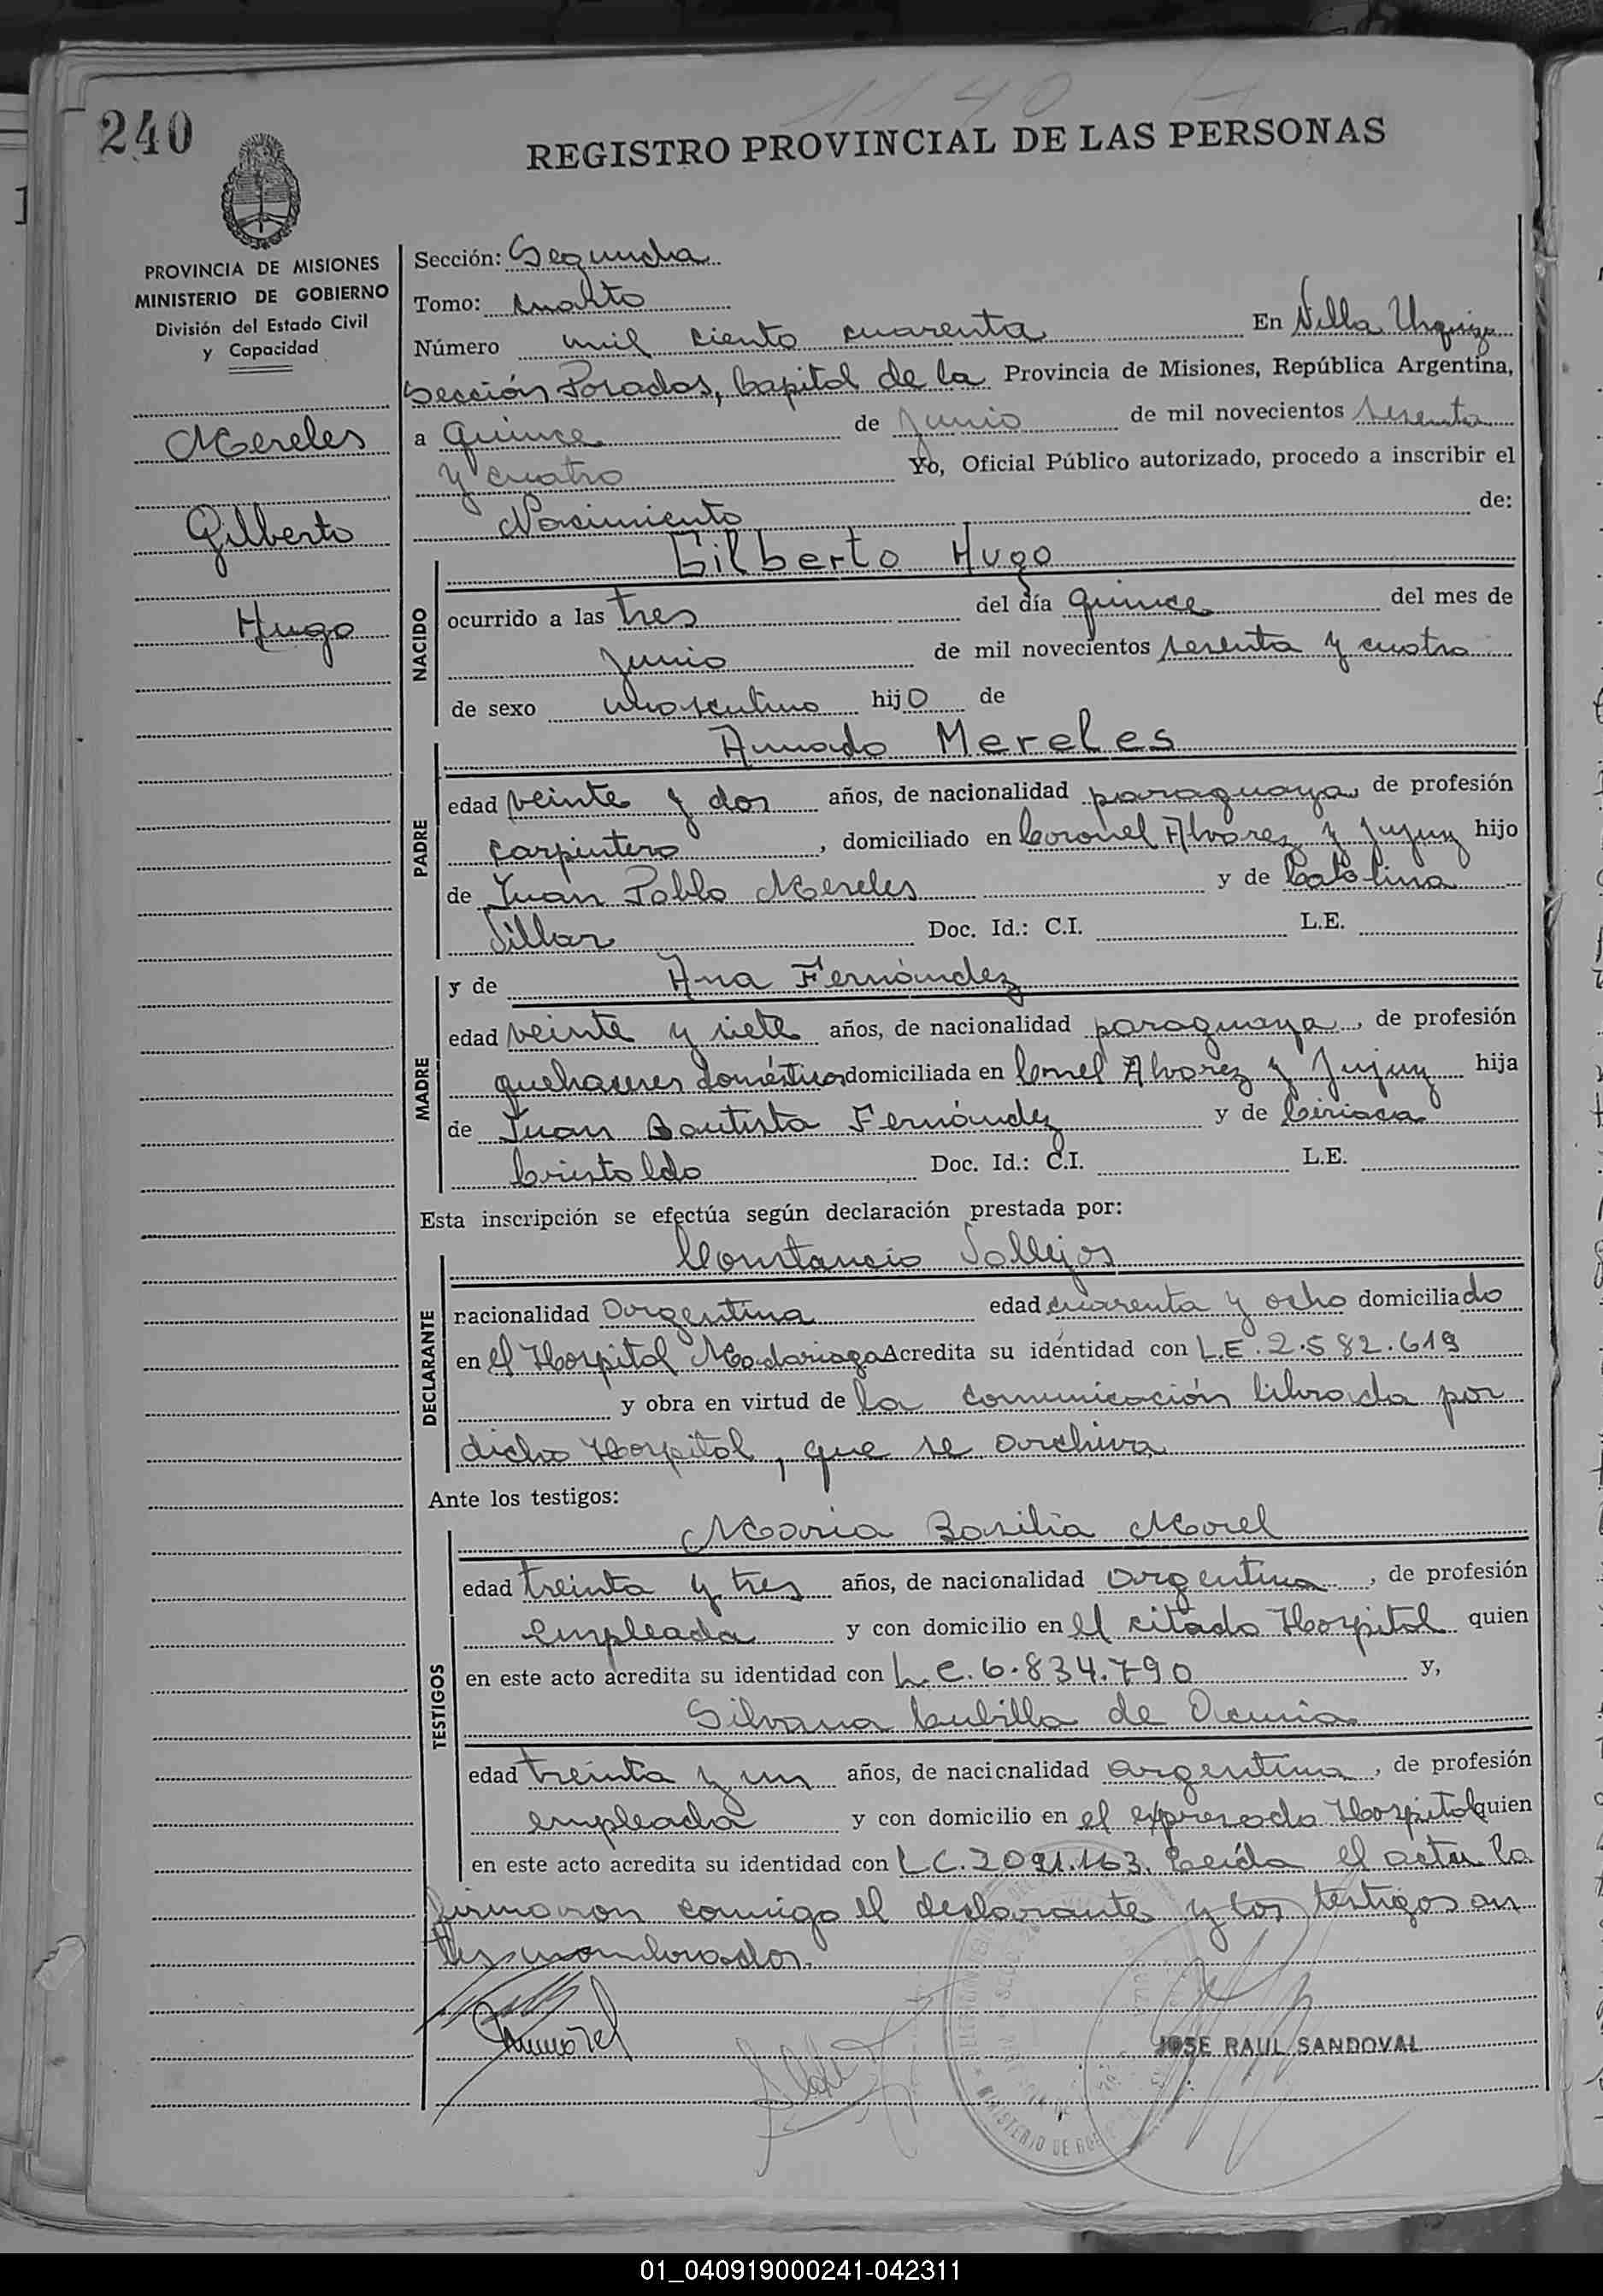 1140
240
REGISTRO PROVINCIAL DE LAS PERSONAS
PROVINCIA DE MISIONES
MINISTERIO DE GOBIERNO
División del Estado Civil
y Capacidad
Mereles
Gilberto
Hugo
Sección: Segunda
Tomo: cuarto
Número mil ciento cuarenta En Villa Urquiza
Sección Posadas, Capital de la Provincia de Misiones, República Argentina,
a quince de junio de mil novecientos sesenta
y cuatro Yo, Oficial Público autorizado, procedo a inscribir el
Nacimiento de:
NACIDO
Gilberto Hugo
ocurrido a las tres del día quince del mes de
junio de mil novecientos sesenta y cuatro
de sexo masculino hijo de
PADRE
Amado Mereles
edad veinte y dos años, de nacionalidad paraguaya, de profesión
carpintero, domiciliado en Coronel Alvarez y Jujuy hijo
de Juan Pablo Mereles y de Catalina
Doc. Id.: C.I. L.E.
MADRE
y de Ana Fernández
edad veinte y siete años, de nacionalidad paraguaya, de profesión
quehaseres domésticos domiciliada en Cnel Alvarez y Jujuy hija
de Juan Bautista Fernández y de Ciriaca
Cristaldo Doc. Id.: C.I. L.E.
Esta inscripción se efectúa según declaración prestada por:
DECLARANTE
Constancio Vallejos
nacionalidad Argentina edad cuarenta y ocho domiciliado
en el Hospital Madariaga Acredita su identidad con L.E. 2.582.619
y obra en virtud de la comunicación librada por
dicho Hospital, que se archiva
Ante los testigos:
TESTIGOS
Maria Basilia Morel
edad treinta y tres años, de nacionalidad argentina, de profesión
empleada y con domicilio en el citado Hospital quien
en este acto acredita su identidad con L.C. 6.834.790 y,
Silvana Cubilla de Acuña
edad treinta y un años, de nacionalidad argentina, de profesión
empleada y con domicilio en el expresado Hospital quien
en este acto acredita su identidad con L.C. 2091.163. Leída el acta la
firmaron conmigo el declarante y los testigos an
tes nombrados.
JOSE RAUL SANDOVAL
MINISTERIO DE
01_040919000241-042311